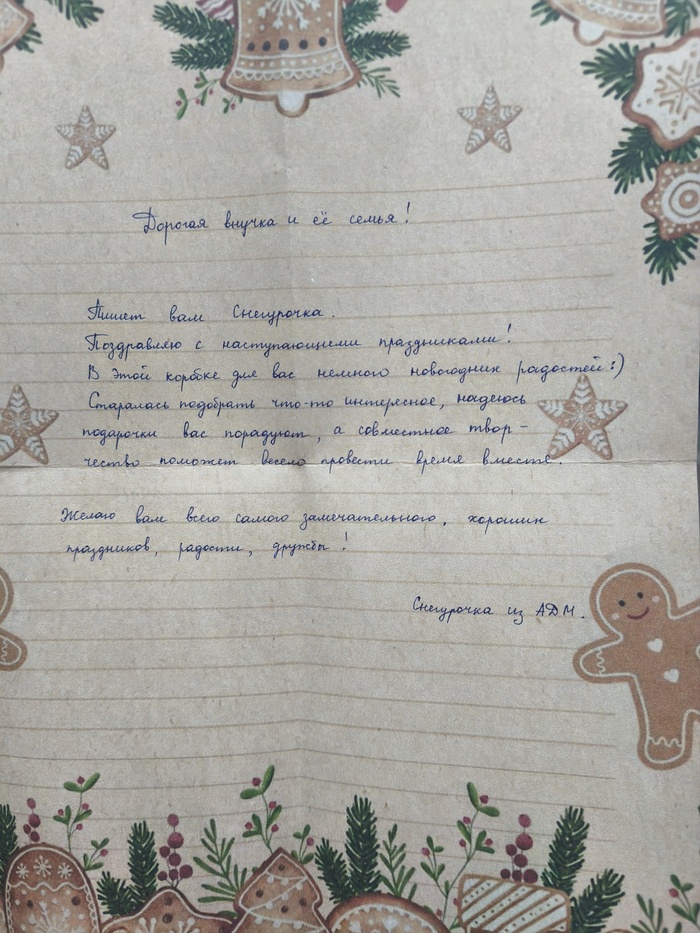 Дорогая внучка и её семья!
Пишет вам Снегурочка.
Поздравляю с наступающими праздниками!
В этой коробке для вас немного новогодних радостей:)
Старалась подобрать что-то интересное, надеюсь
подарочки вас порадуют, а совместное твор-
чество поможет весело провести время вместе.
Желаю вам всего самого замечательного, хороших
праздников, радости, дружбы!
Снегурочка из АДМ.